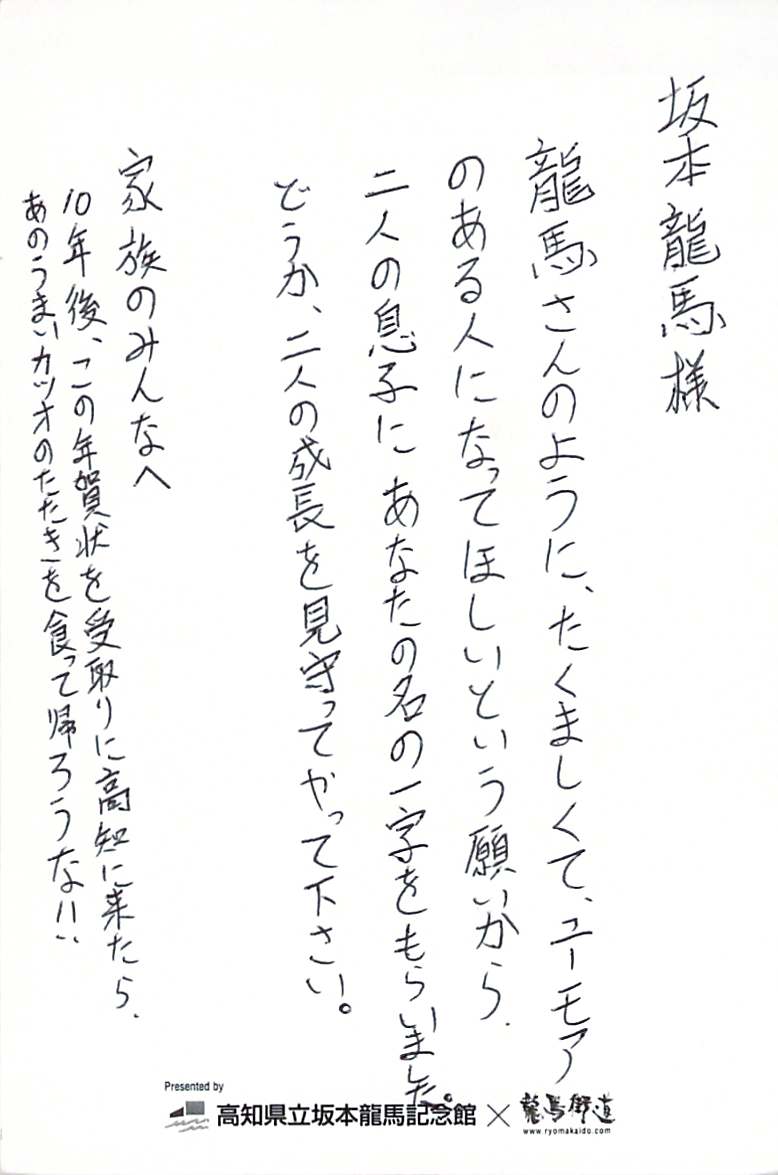 坂本龍馬様
龍馬さんのように、たくましくて、ユーモア
のある人になってほしいという願いから、
二人の息子にあなたの名の一字をもらいました。
どうか、二人の成長を見守ってやって下さい。
家族のみんなへ
10年後、この年賀状を受取りに高知に来たら、
あのうまいカツオのたたきを食って帰ろうな!!
Presented by
高知県立坂本龍馬記念館×龍馬街道
www.ryomakaido.com